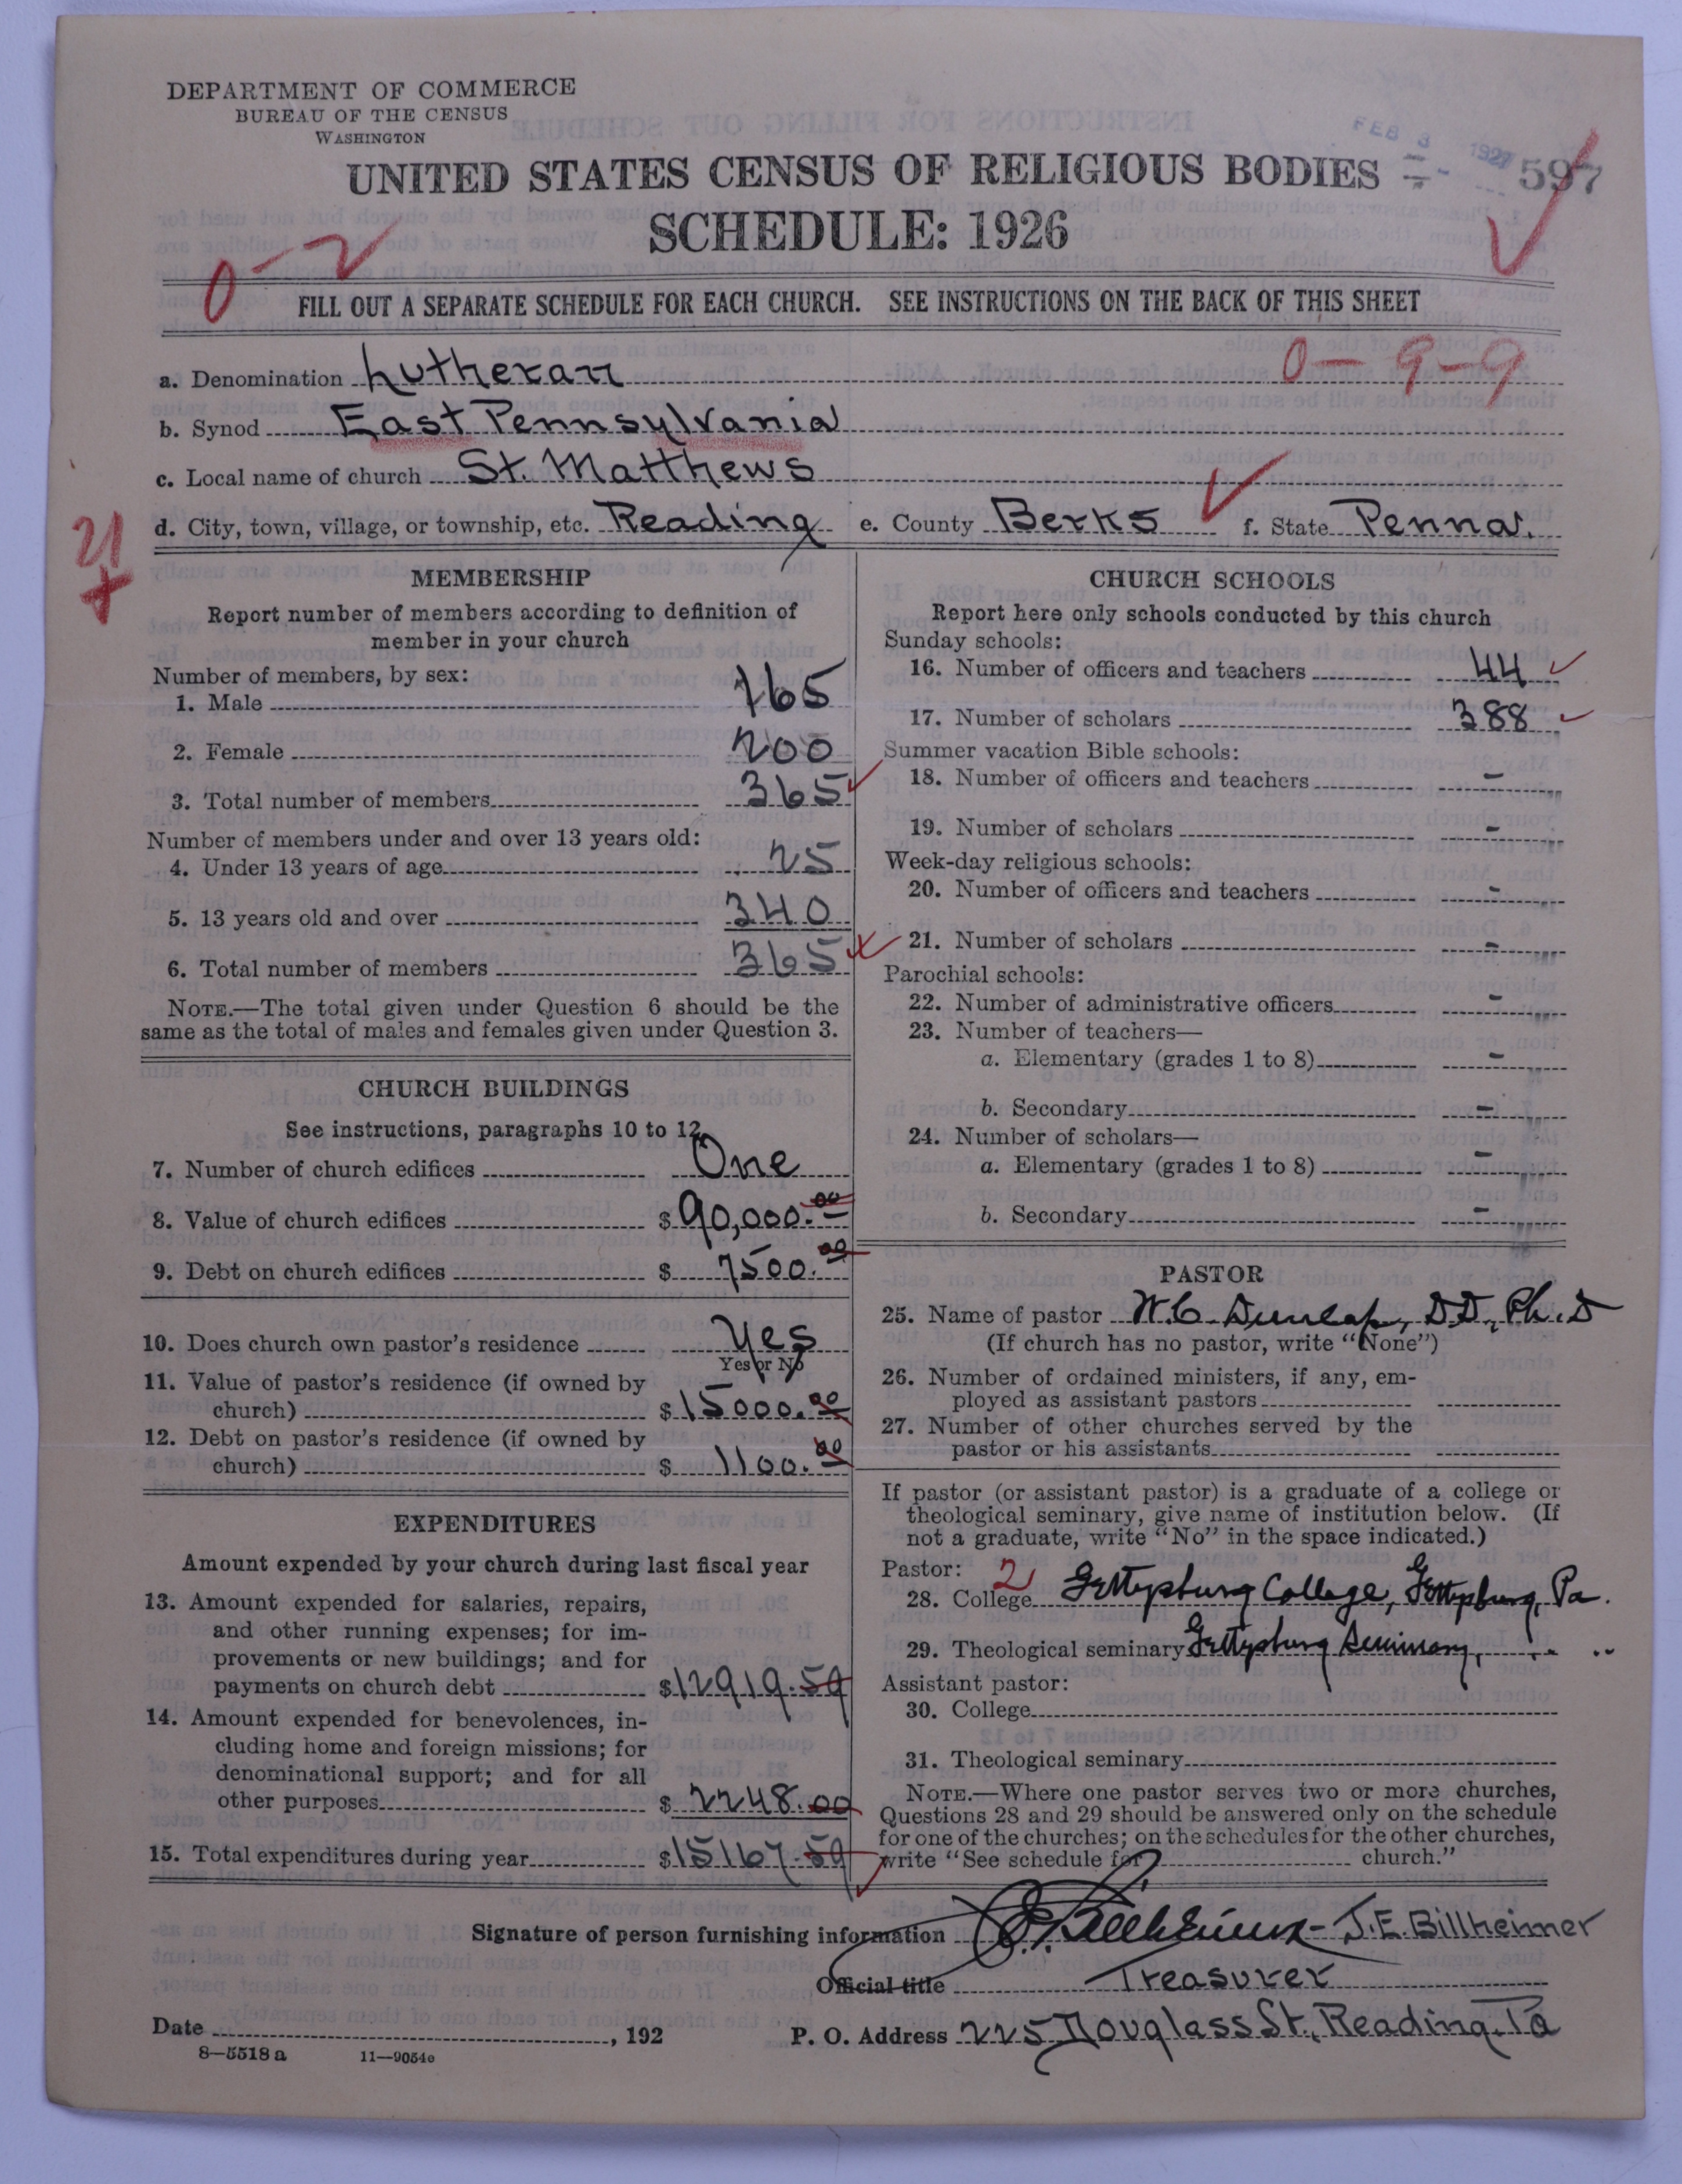 DEPARTMENT OF COMMERCE
BUREAU OF THE CENSUS
WASHINGTON
FEB 3 1927
UNITED STATES CENSUS OF RELIGIOUS BODIES
597
SCHEDULE: 1926
0-2
FILL OUT A SEPARATE SCHEDULE FOR EACH CHURCH. SEE INSTRUCTIONS ON THE BACK OF THIS SHEET
0-9-9
a. Denomination Lutheran
b. Synod East Pennsylvania
c. Local name of church St. Matthews
d. City, town, village, or township, etc. Reading e. County Berks f. State Penna.
21
MEMBERSHIP
Report number of members according to definition of
member in your church
Number of members, by sex:
1. Male 165
2. Female 200
3. Total number of members 365
Number of members under and over 13 years old:
4. Under 13 years of age 25
5. 13 years old and over 340
6. Total number of members 365
NOTE.—The total given under Question 6 should be the
same as the total of males and females given under Question 3.
CHURCH BUILDINGS
See instructions, paragraphs 10 to 12
7. Number of church edifices One
8. Value of church edifices $ 90,000.00
9. Debt on church edifices $ 7500.00
10. Does church own pastor's residence Yes
Yes or No
11. Value of pastor's residence (if owned by
church) $ 15000.00
12. Debt on pastor's residence (if owned by
church) $ 1100.00
EXPENDITURES
Amount expended by your church during last fiscal year
13. Amount expended for salaries, repairs,
and other running expenses; for im-
provements or new buildings; and for
payments on church debt $12919.59
14. Amount expended for benevolences, in-
cluding home and foreign missions; for
denominational support; and for all
other purposes $ 2248.00
15. Total expenditures during year $15167.59
CHURCH SCHOOLS
Report here only schools conducted by this church
Sunday schools:
16. Number of officers and teachers 44
17. Number of scholars 388
Summer vacation Bible schools:
18. Number of officers and teachers -
19. Number of scholars -
Week-day religious schools:
20. Number of officers and teachers -
21. Number of scholars -
Parochial schools:
22. Number of administrative officers -
23. Number of teachers—
a. Elementary (grades 1 to 8) -
b. Secondary -
24. Number of scholars—
a. Elementary (grades 1 to 8) -
b. Secondary -
PASTOR
25. Name of pastor W.C. Dunlap, D.D., Ph.D
(If church has no pastor, write "None")
26. Number of ordained ministers, if any, em-
ployed as assistant pastors
27. Number of other churches served by the
pastor or his assistants
If pastor (or assistant pastor) is a graduate of a college or
theological seminary, give name of institution below. (If
not a graduate, write "No" in the space indicated.)
Pastor: 2
28. College Gettysburg College, Gettysburg, Pa.
29. Theological seminary Gettysburg Seminary, " "
Assistant pastor:
30. College
31. Theological seminary
NOTE.—Where one pastor serves two or more churches,
Questions 28 and 29 should be answered only on the schedule
for one of the churches; on the schedules for the other churches,
write "See schedule for church."
Signature of person furnishing information J.E. Billheimer - J.E. Billheimer
Official title Treasurer
Date , 192 P. O. Address 225 Douglass St., Reading, Pa
8—5518 a 11—9054e